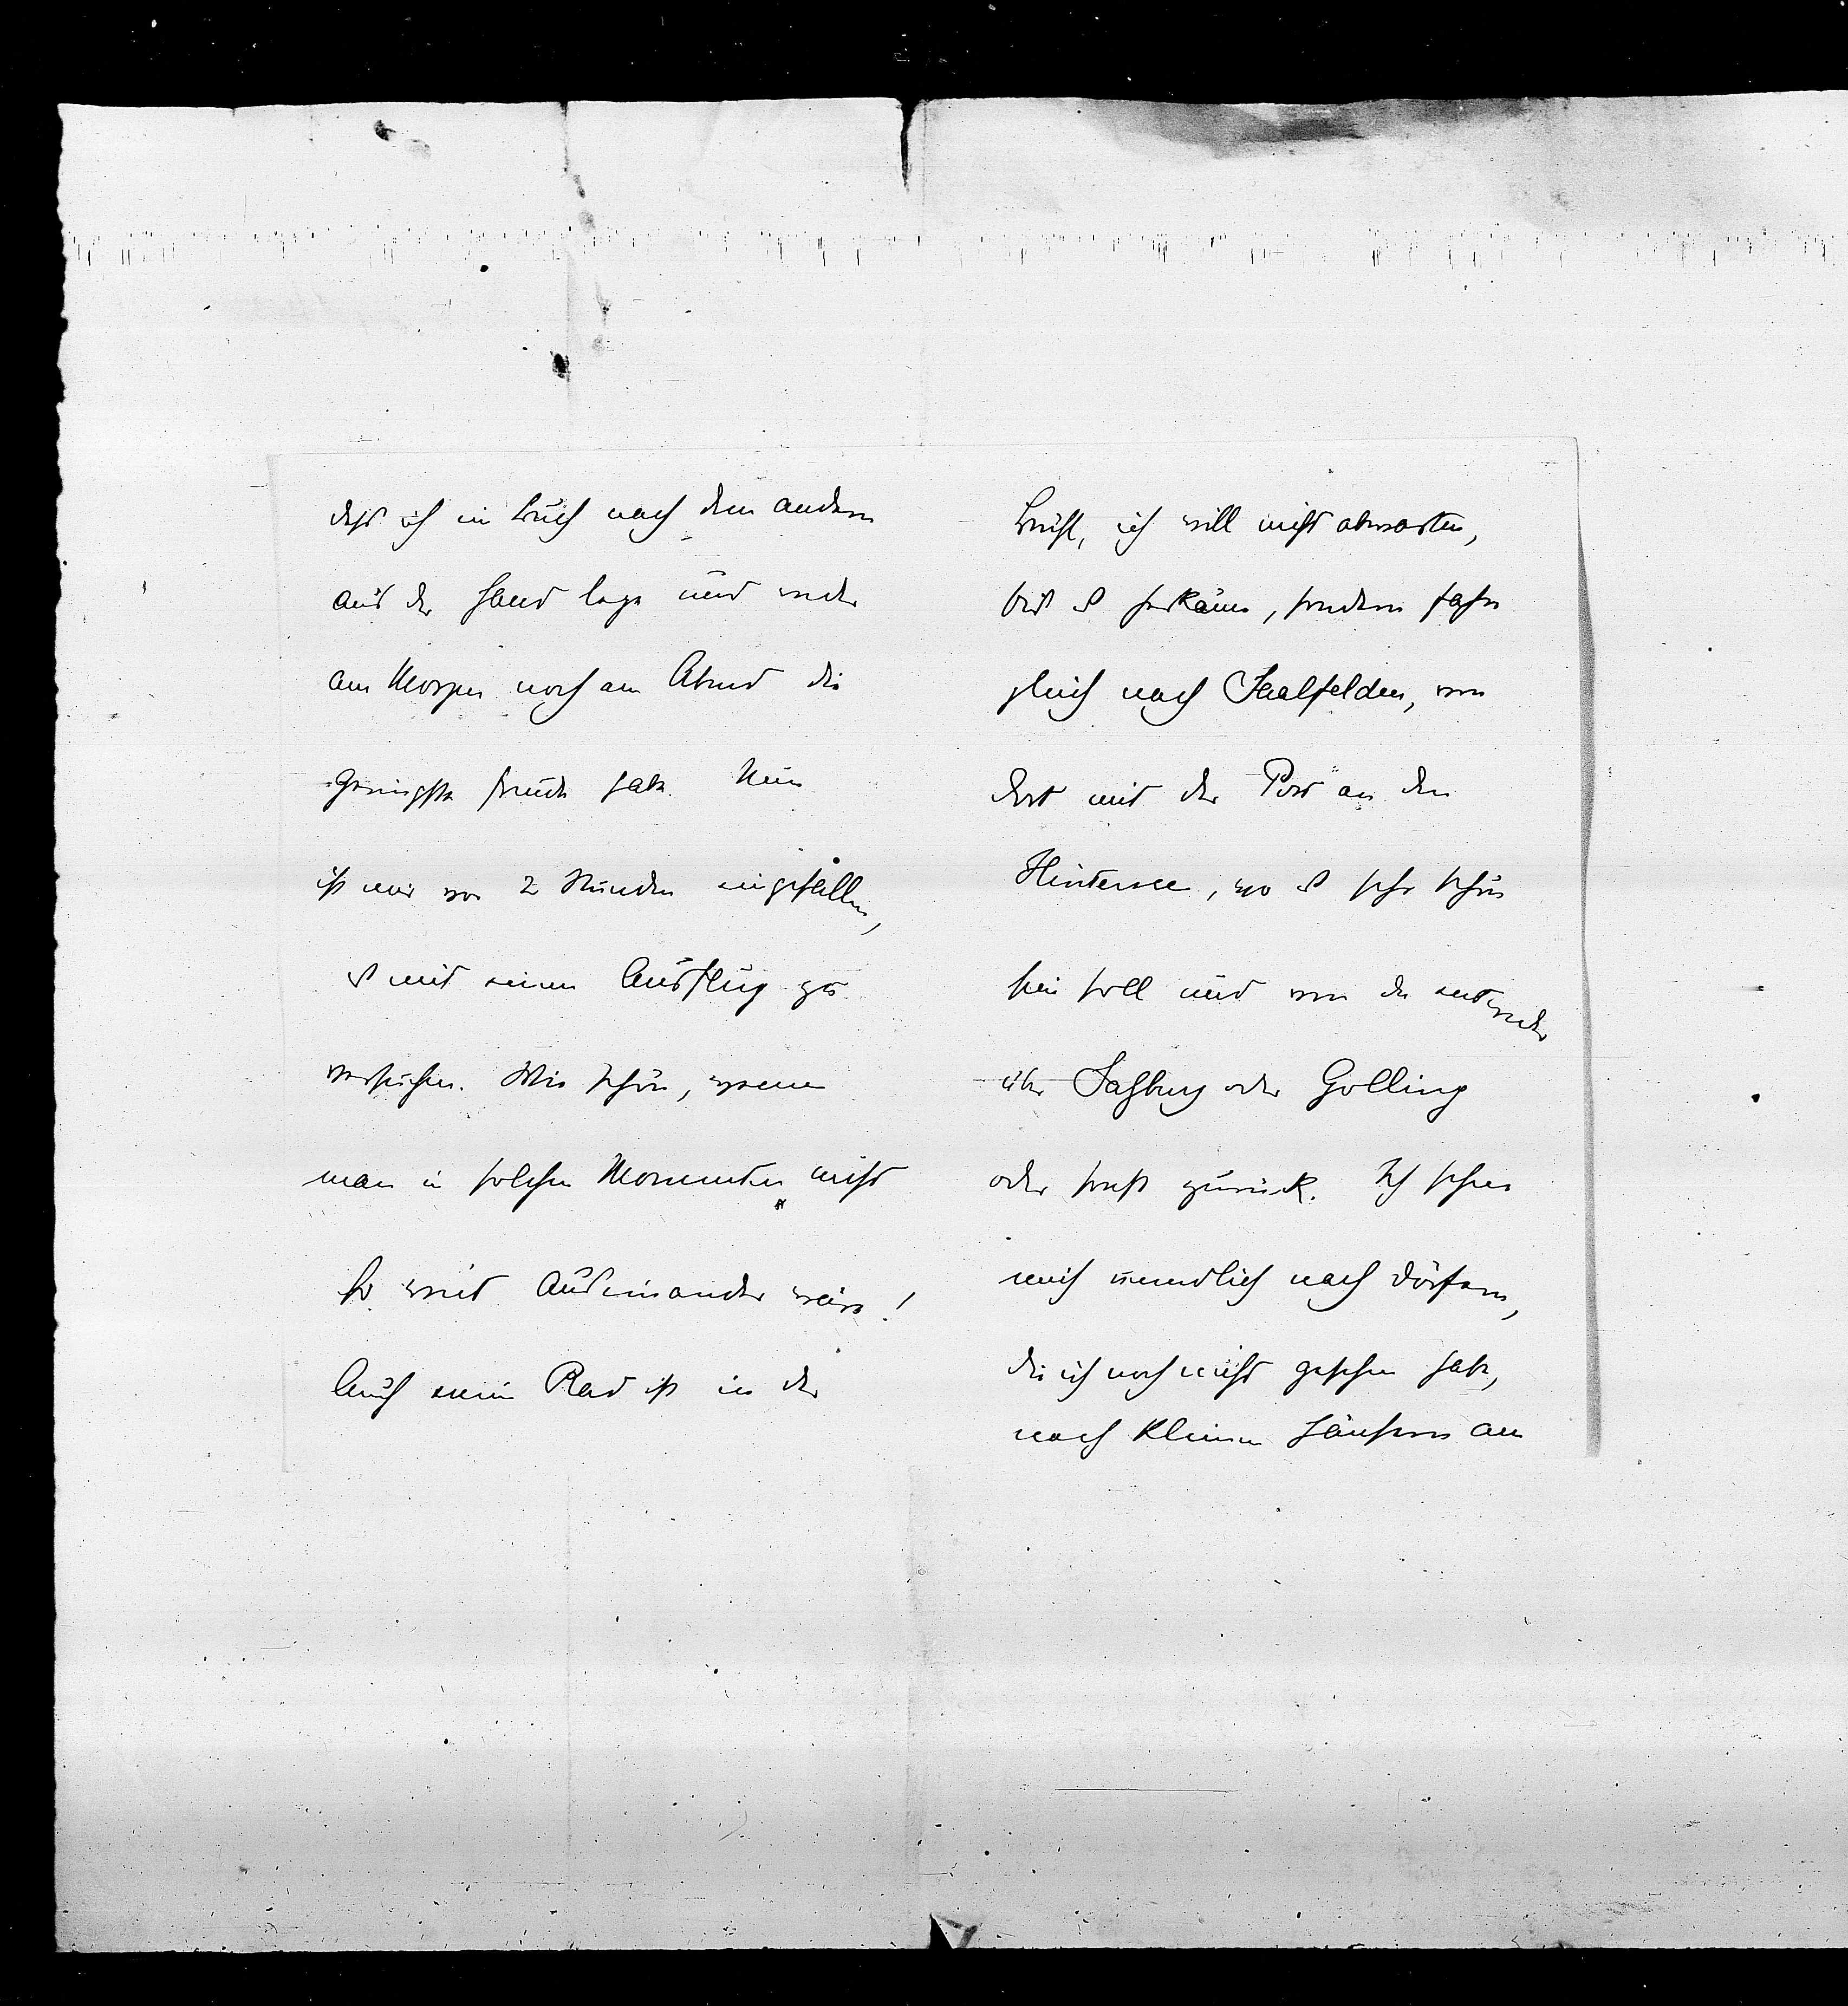 daß ich ein Buch nach dem andern
aus der Hand lege und weder
am Morgen noch am Abend die
geringste Freude habe. Nun
ist mir vor 2 Stunden eingefallen,
es mit einem Ausflug zu
versuchen. Wie schön, wenn
man in solchen Momenten nicht
so weit auseinander wäre!
Auch mein Rad ist in der
Brühl, ich will nicht abwarten,
bis es herkäme, sondern fahre
gleich nach Saalfelden, von
dort mit der Post an den
Hintersee, wo es sehr schön
sein soll und von da entweder
über Salzburg oder Golling
oder sonst zurück. Ich sehne
mich unendlich nach Dörfern,
die ich noch nicht gesehen habe,
nach kleinen Häusern am